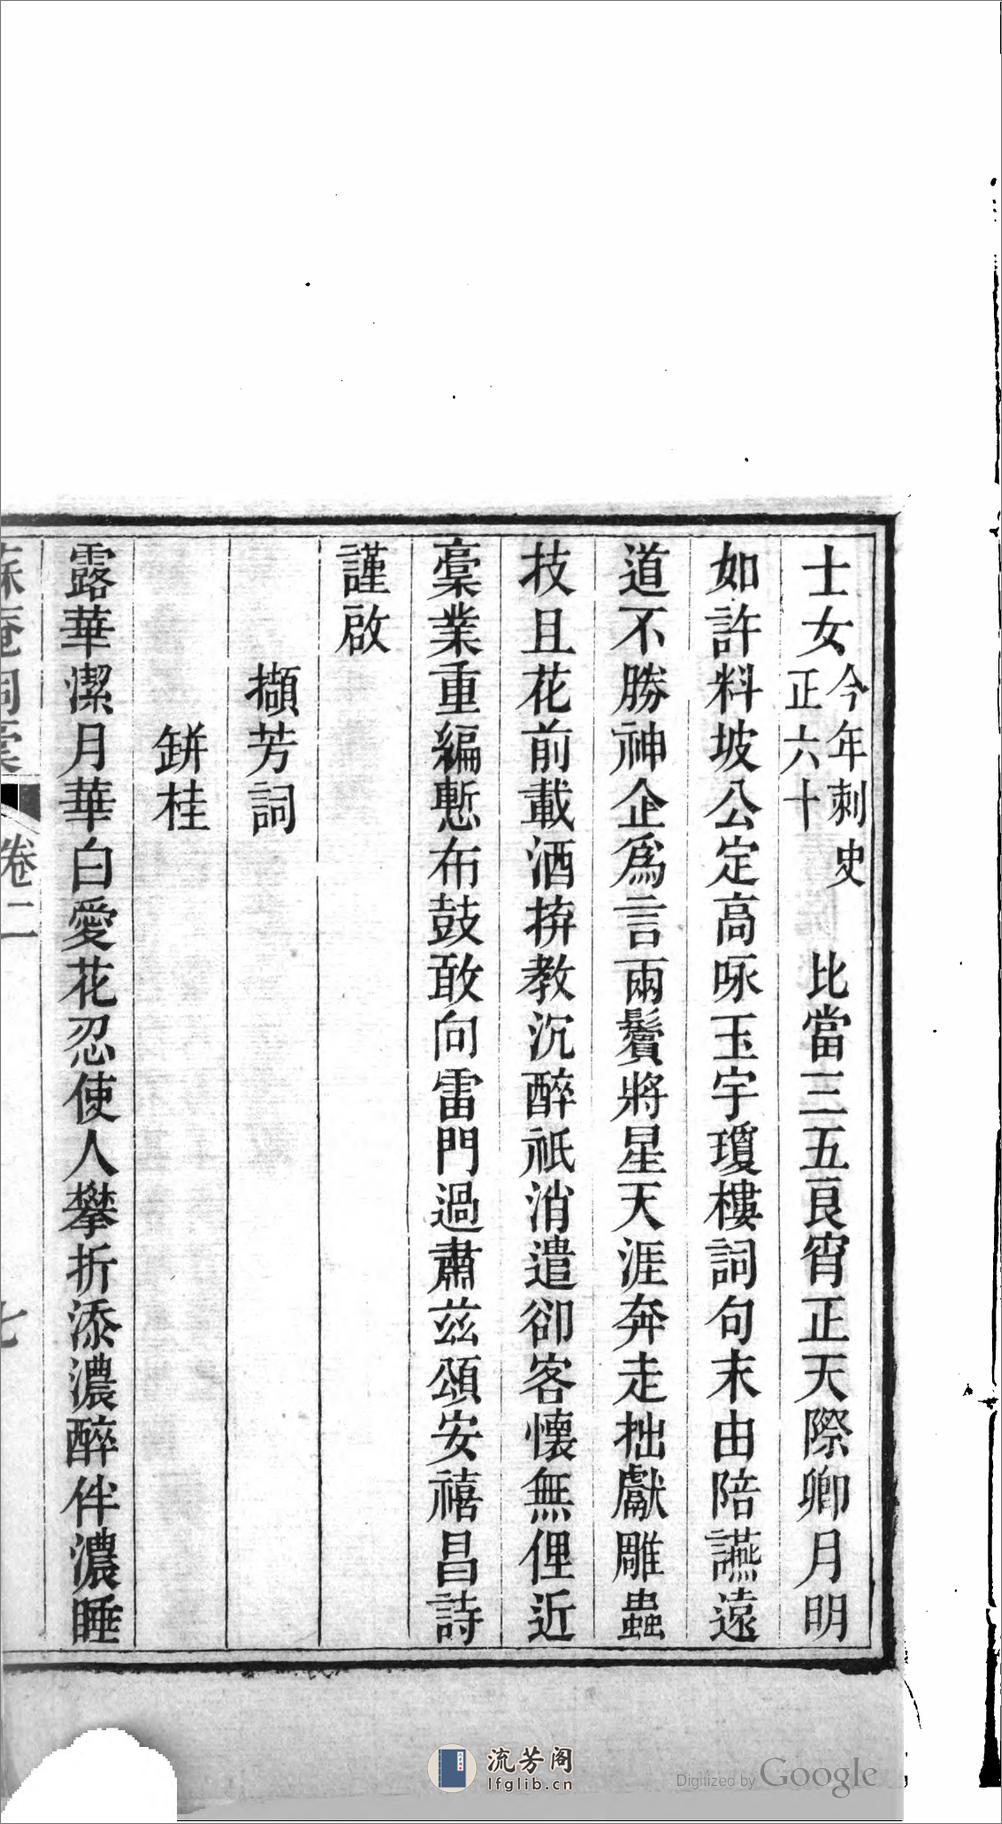 士女今年刺史正六十　比當三五良宵正天際卿月明
如許料坡公定高咏玉宇瓊樓詞句末由陪讌遠
道不勝神企爲言兩鬢將星天涯奔走拙獻雕蟲
技且花前載酒拚教沉醉祇消遣卻客懷無俚近
稾業重編慙布鼓敢向雷門過肅茲頌安禧昌詩
謹啟
擷芳詞
缾桂
露華潔月華白愛花忍使人攀折添濃醉伴濃睡
卷二
七
流芳阁
lfglib.cn
Digitized by Google